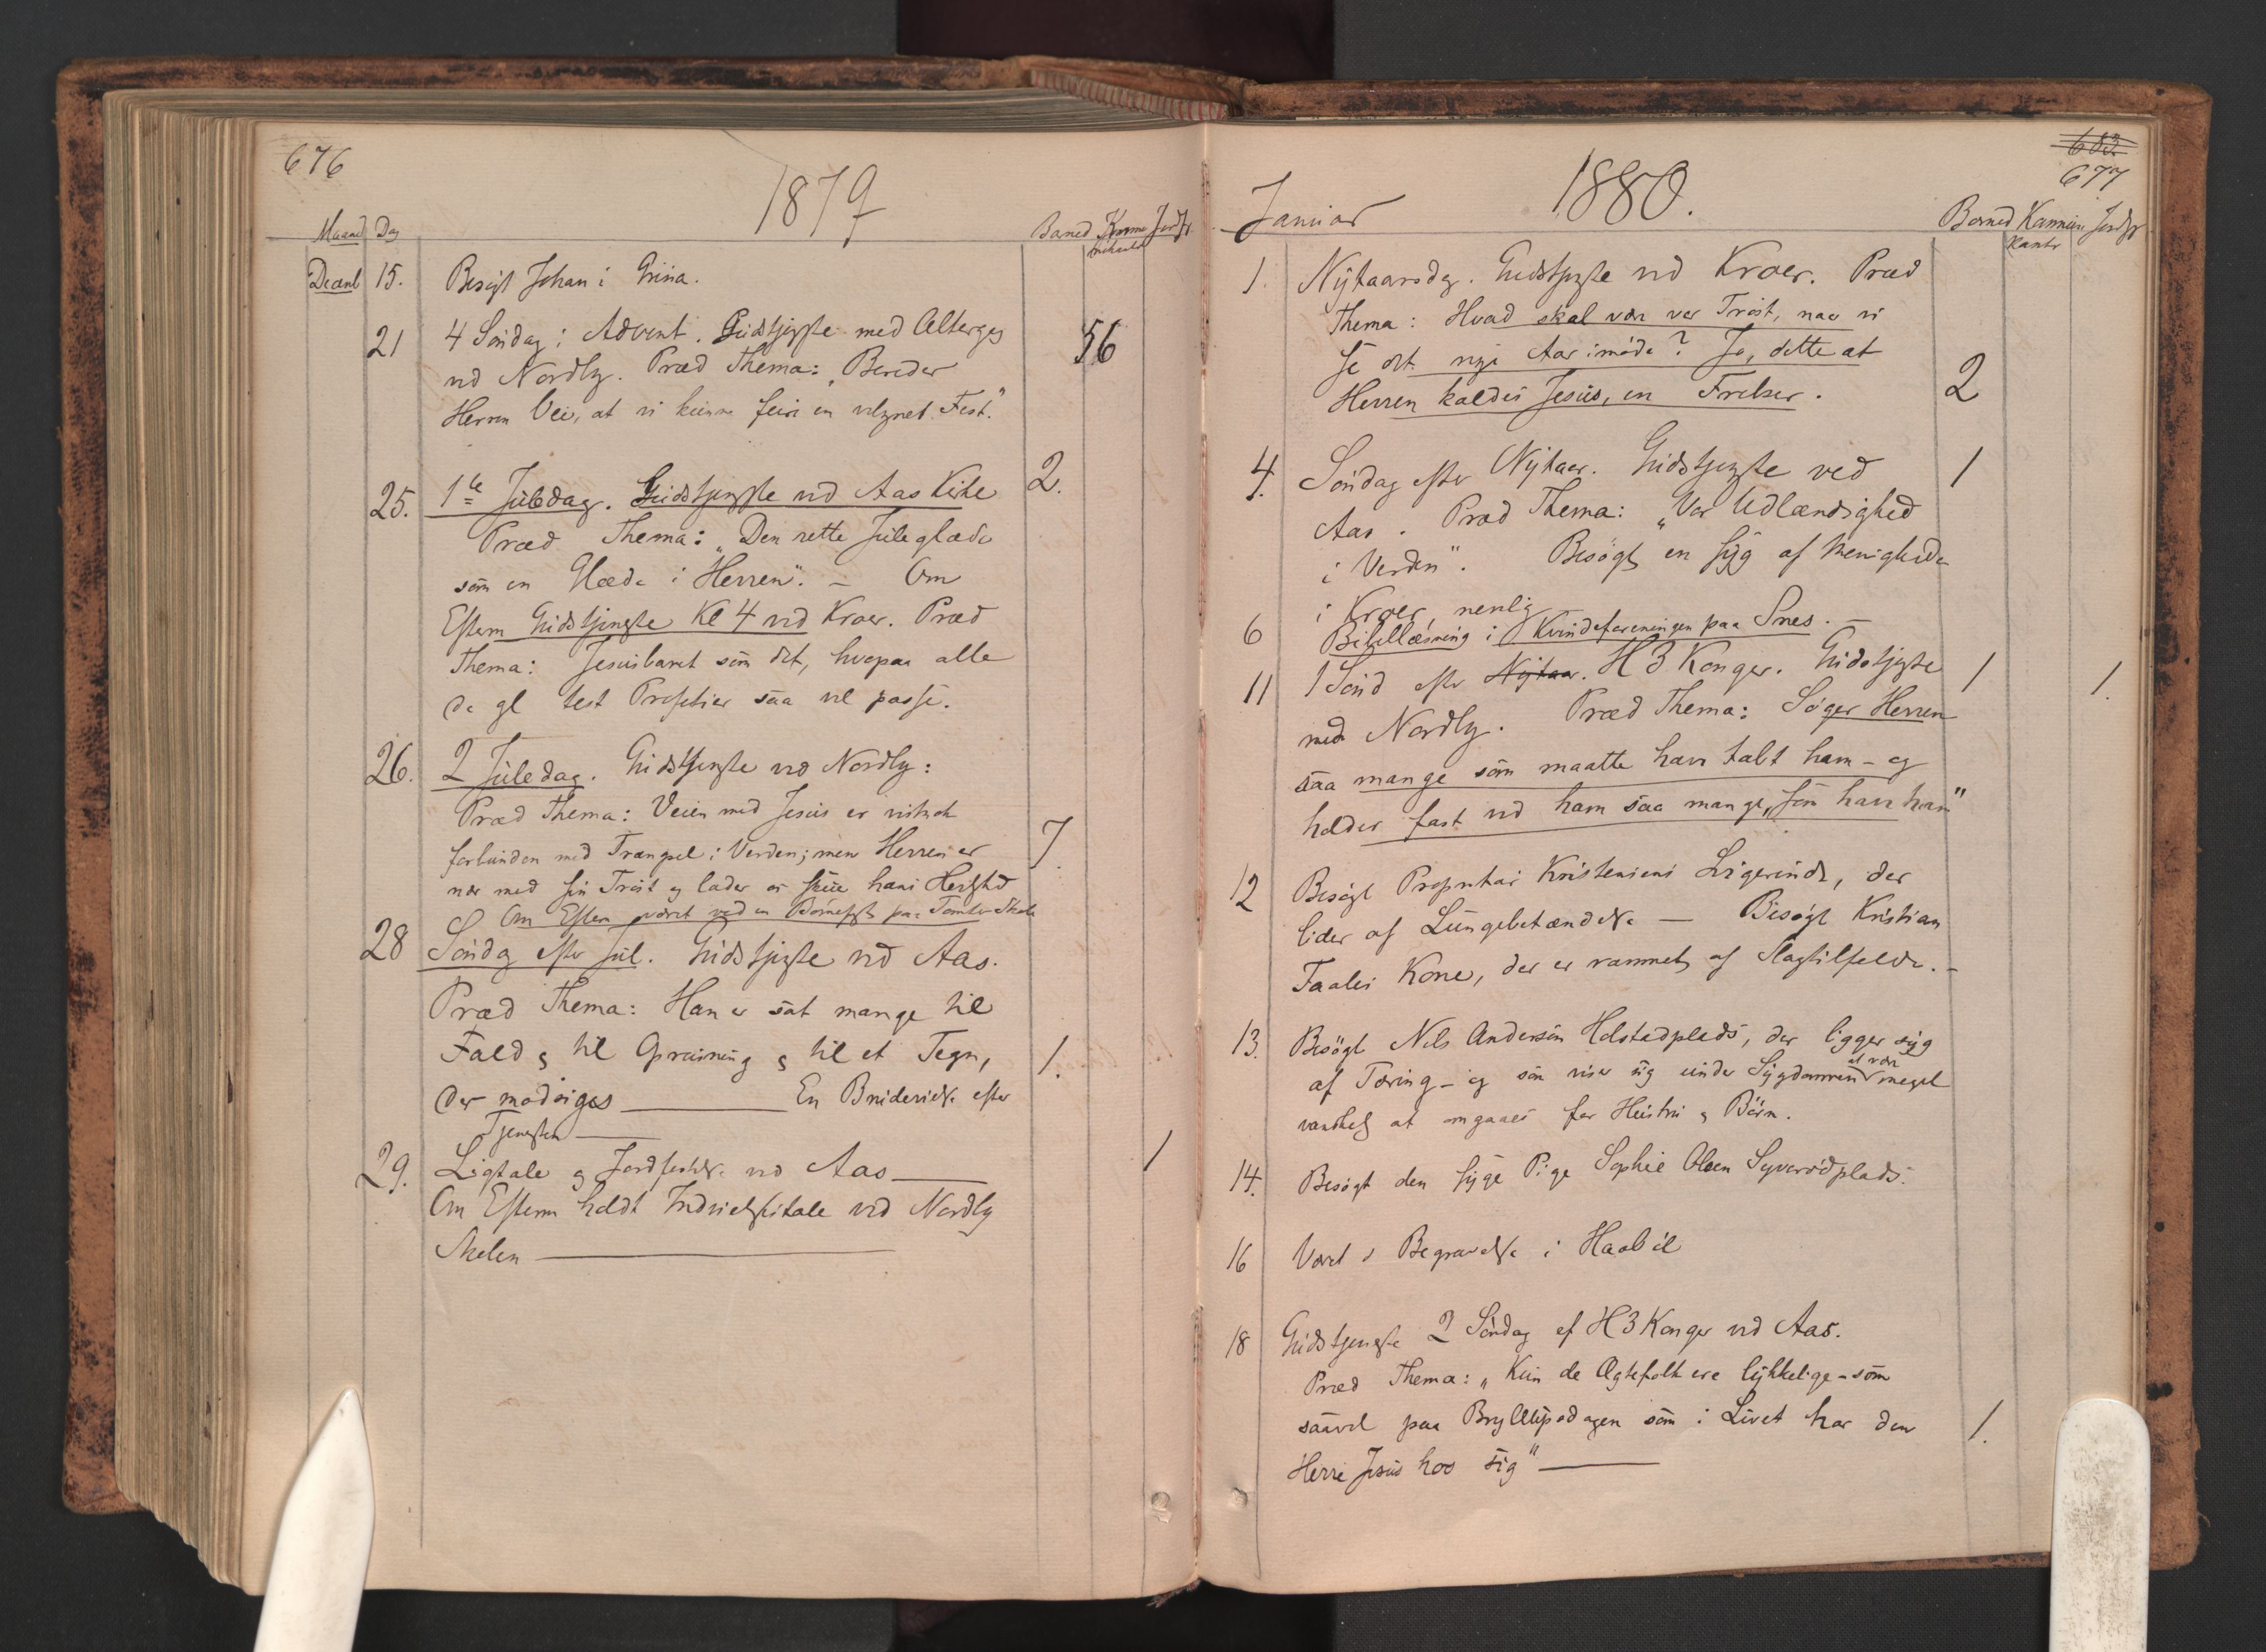 676
1879
Maaned Dag
Barned Kommu Jordf
nikanter
Decemb 15. Besøgt Johan i Grina.
21 4 Søndag i Advent. Gudstjeneste med Altergg 56
ved Nordby. Præd Thema: „Bereder
Herren Vei, at vi kunne feire en velsignet Fest."
25. 1ste Juledag. Gudstjeneste ved Aas Kirke 2.
Præd Thema: „Den rette Juleglæde
som en Glæde i Herren". — Om
Efterm Gudstjeneste Kl 4 ved Kroer. Præd
Thema: Jesusbarnet som det, hvorpaa alle
de gl test Profetier saa vel passe.
26. 2 Juledag. Gudstjeneste ved Nordby:
Præd Thema: Veien med Jesus er vistnok
forbunden med Trængsel i Verden; men Herren er 7
nær med sin Trøst og lader os skue hans Herlighd
Om Efterm været ved en Børnefest paa Tomter Skole
28 Søndag efter Jul. Gudstjeneste ved Aas.
Præd Thema: Han er sat mange til
Fald og til Opreisning og til et Tegn, 1.
der modsiges — En Brudevielse efter
Tjenesten —
29. Ligtale og Jordfæstelse ved Aas — 1
Om Efterm holdt Indvielsestale ved Nordby
Skolen —
683
677
Januar 1880.
Barned Kommuni Jordf
kanter
1. Nytaarsdag. Gudstjeneste ved Kroer. Præd
Thema: Hvad skal være vor Trøst, naar vi
se det nye Aar imøde? Jo, dette at
Herren kaldes Jesus, en Frelser. 2
4. Søndag efter Nytaar. Gudstjeneste ved 1
Aas. Præd Thema: „Vor Udlændighed
i Verden". Besøgt en syg af Menigheden
i Kroer nemlig
6 Bibellæsning i Kvindeforeningen paa Snes. —
11 1 Sønd efter Nytaar. H 3 Konger. Gudstjeneste 1 1.
ved Nordby. Præd Thema: Søger Herren
saa mange som maatte have tabt ham — og
holder fast ved ham saa mange, som have ham"
12 Besøgt Proprietær Kristensens Sigerinde, der
lider af Lungebetændelse — Besøgt Kristian
Faales Kone, der er rammet af Slagtilfælde. —
13. Besøgt Nils Andersen Holstadplads, der ligger syg
af Tæring — og som viser sig under Sygdommen at være meget
vanskelig at omgaaes for Hustru og Børn.
14. Besøgt den syge Pige Sophie Olsen Syverødplads.
16 Været i Begravelse i Haabøl
18 Gudstjeneste 2 Søndag ef H 3 Konger ved Aas.
Præd Thema: „Kun de Ægtefolk ere lykkelige — som
saavel paa Bryllupsdagen som i Livet har den 1.
Herre Jesus hos sig" —